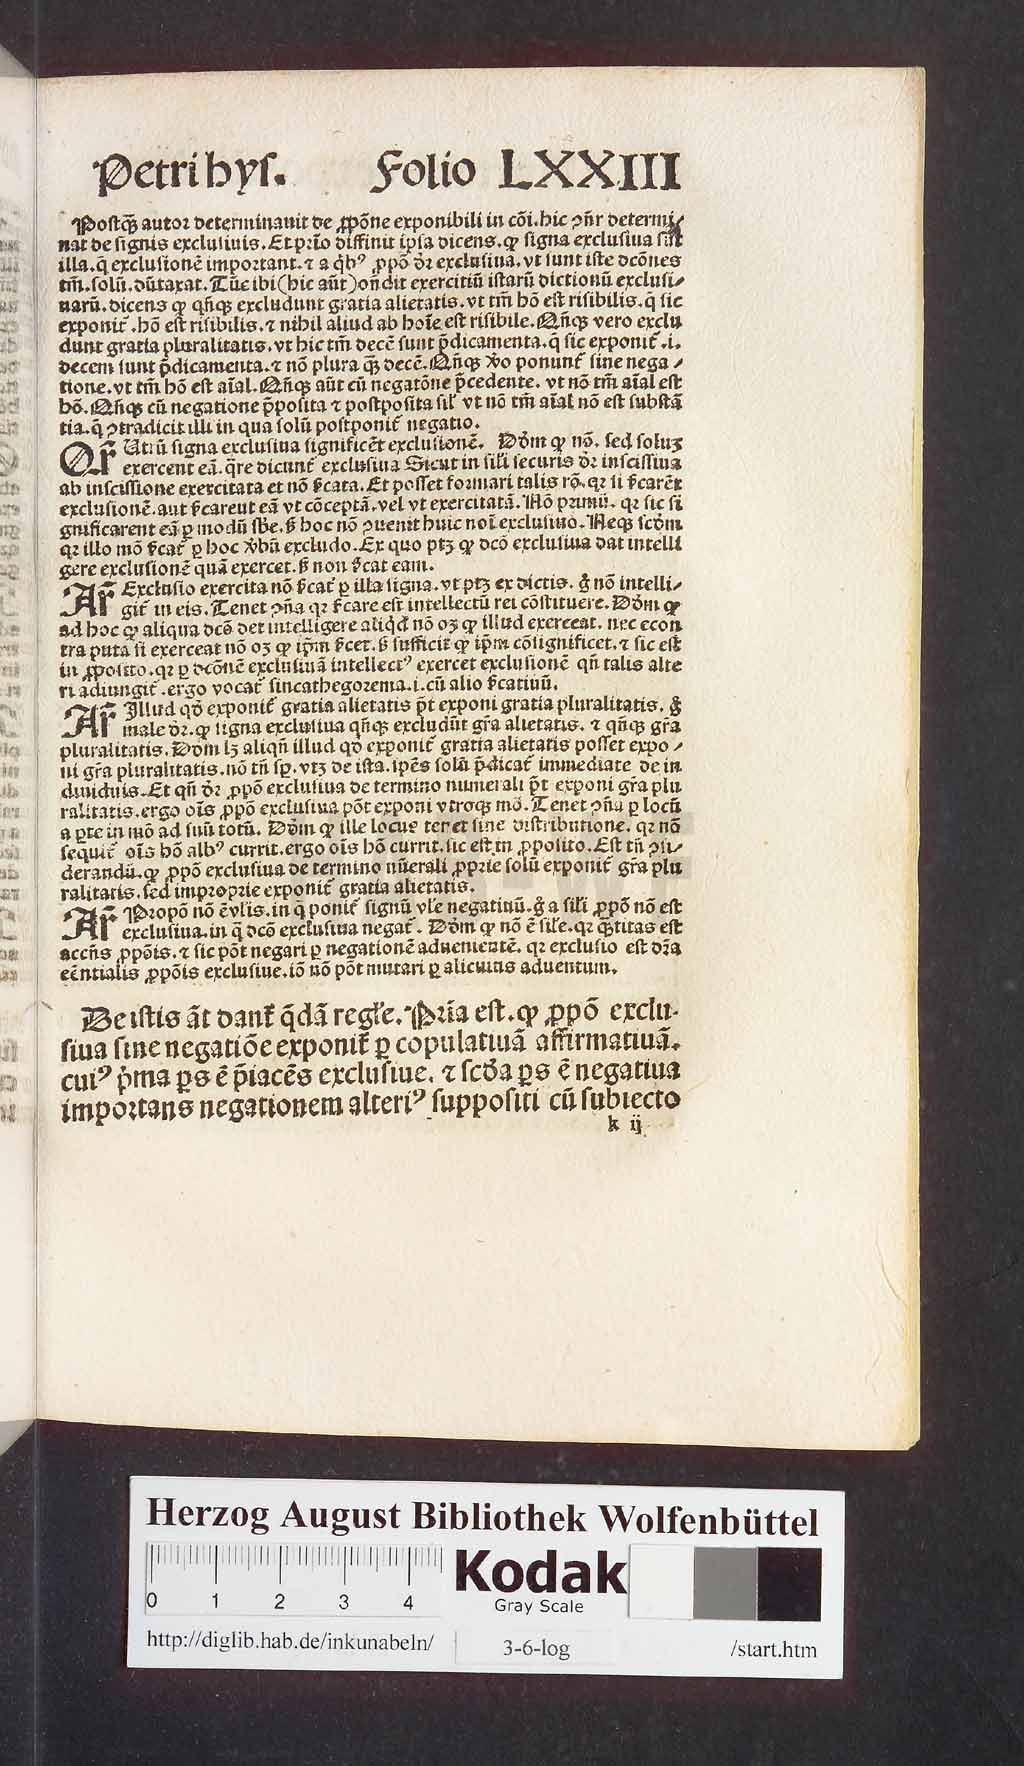 Petri hys. Folio LXXIII
Postq̃ autor determinauit de ꝓpõne exponibili in cõi. hic ↄñr determi⸗
nat de signis exclusiuis. Et prĩo diffinit ipsa dicens. ꝙ signa exclusiua sũt
illa. q̃ exclusionẽ important. ⁊ a qͥbꝰ ꝓpõ dr̃ exclusiua. vt sunt iste dcõnes
tm̃. solũ. dũtaxat. Tũc ibi (hic aũt) ondit exercitiũ istarũ dictionũ exclusi⸗
uarũ. dicens ꝙ qñqꝫ excludunt gratia alietatis. vt tm̃ hõ est risibilis. q̃ sic
exponit̃. hõ est risibilis. ⁊ nihil aliud ab hoĩe est risibile. Qñqꝫ vero exclu
dunt gratia pluralitatis. vt hic tm̃ decẽ sunt p̃dicamenta. q̃ sic exponit̃. i.
decem sunt p̃dicamenta. ⁊ nõ plura q̃ decẽ. Qñqꝫ v̓o ponunt̃ sine nega⸗
tione. vt tm̃ hõ est aĩal. Qñqꝫ aũt cũ negatõne p̃cedente. vt nõ tm̃ aĩal est
hõ. Qñqꝫ cũ negatione p̃posita ⁊ postposita sil̃ vt nõ tm̃ aĩal nõ est substã
tia. q̃ ↄtradicit illi in qua solũ postponit̃ negatio.
Qr̃ Vtrũ signa exclusiua significẽt exclusionẽ. Dõm ꝙ nõ. sed soluʒ
exercent eã. q̃re dicunt̃ exclusiua Sicut in sil̃i securis dr̃ inscissiua
ab inscissione exercitata et nõ s̃cata. Et posset formari talis rõ. qr si s̃carẽt
exclusionẽ. aut s̃carent eã vt cõceptã. vel vt exercitatã. Nõ primũ. qr sic si
gnificarent eã ꝑ modũ sb̃e. s̃ hoc nõ ↄuenit huic noĩ exclusiuo. Neqꝫ scd̃m
qr illo mõ s̃cat̃ ꝑ hoc v̓bũ excludo. Ex quo ptʒ ꝙ dcõ exclusiua dat intelli
gere exclusionẽ quã exercet. s̃ non s̃cat eam.
Ar̃ Exclusio exercita nõ s̃cat̃ ꝑ illa signa. vt ptʒ ex dictis. g̊ nõ intelli⸗
git̃ in eis. Tenet ↄña qr s̃care est intellectũ rei cõstituere. Dõm ꝙ
ad hoc ꝙ aliqua dcõ det intelligere aliqͥd nõ oʒ ꝙ illud exerceat. nec econ
tra puta si exerceat nõ oʒ ꝙ ip̃m s̃cet. s̃ sufficit ꝙ ip̃m cõsignificet. ⁊ sic est
in ꝓposito. qr ꝑ dcõnẽ exclusiuã intellectꝰ exercet exclusionẽ qñ talis alte
ri adiungit̃. ergo vocat̃ sincathegorema. i. cũ alio s̃catiuũ.
Ar̃ Illud qd̓ exponit̃ gratia alietatis p̃t exponi gratia pluralitatis. g̊
male dr̃. ꝙ signa exclusiua qñqꝫ excludũt gr̃a alietatis. ⁊ qñqꝫ gr̃a
pluralitatis. Dõm lʒ aliqñ illud qd̓ exponit̃ gratia alietatis posset expo⸗
ni gr̃a pluralitatis. nõ tñ sꝑ. vtʒ de ista. sp̃es solũ p̃dicat̃ immediate de in
diuiduis. Et qñ dr̃ ꝓpõ exclusiua de termino numerali p̃t exponi gr̃a plu
ralitatis. ergo oĩs ꝓpõ exclusiua põt exponi vtroqꝫ mõ. Tenet ↄña ꝑ locũ
a ꝑte in mõ ad suũ totũ. Dõm ꝙ ille locus tenet sine distributione. qr nõ
sequit̃ oĩs hõ albꝰ currit. ergo oĩs hõ currit. sic est in ꝓposito. Est tñ ↄsi⸗
derandũ. ꝙ ꝓpõ exclusiua de termino nũerali ꝓprie solũ exponit̃ gr̃a plu
ralitatis. sed improprie exponit̃ gratia alietatis.
Ar̃ Propõ nõ ẽ vl̃is. in q̃ ponit̃ signũ vl̃e negatiuũ. g̊ a sil̃i ꝓpõ nõ est
exclusiua. in q̃ dcõ exclusiua negat̃. Dõm ꝙ nõ ẽ sil̃e. qr q̃titas est
accñs ꝓpõis. ⁊ sic põt negari ꝑ negationẽ aduenientẽ. qr exclusio est dr̃a
eẽntialis ꝓpõis exclusiue. iõ nõ põt mutari ꝑ alicuius aduentum.
De istis ãt dant̃ q̃dã regl̃e. Prĩa est. ꝙ ꝓpõ exclu⸗
siua sine negatiõe exponit̃ ꝑ copulatiuã affirmatiuã.
cuiꝰ p̃ma ꝑs ẽ p̃iacẽs exclusiue. ⁊ scd̃a ꝑs ẽ negatiua
importans negationem alteriꝰ suppositi cũ subiecto
k ij
Herzog August Bibliothek Wolfenbüttel
0 1 2 3 4
Kodak
Gray Scale
http://diglib.hab.de/inkunabeln/ 3-6-log /start.htm